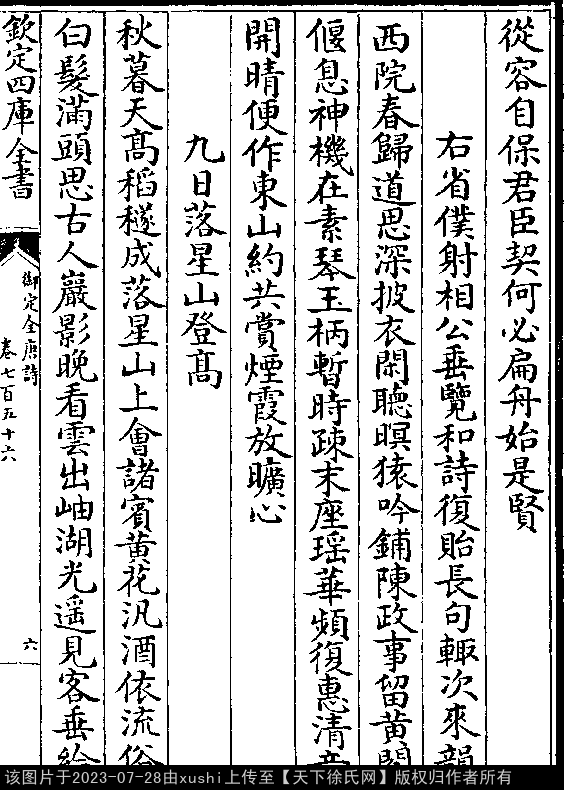 從容自保君臣契何必扁舟始是賢
右省僕射相公垂覽和詩復貽長句輙次來韻
西院春歸道思深披衣閑聽暝猿吟鋪陳政事留黃閣
偃息神機在素琴玉柄暫時疎末座瑶華頻復惠清音
開晴便作東山約共賞煙霞放曠心
九日落星山登髙
秋暮天髙稻穟成落星山上會諸賓黄花汎酒依流俗
白髮滿頭思古人巖影晚看雲出岫湖光遥見客垂綸
欽定四庫全書
御定全唐詩
卷七百五十六
六
该图片于2023-07-28由xushi上传至【天下徐氏网】版权归作者所有